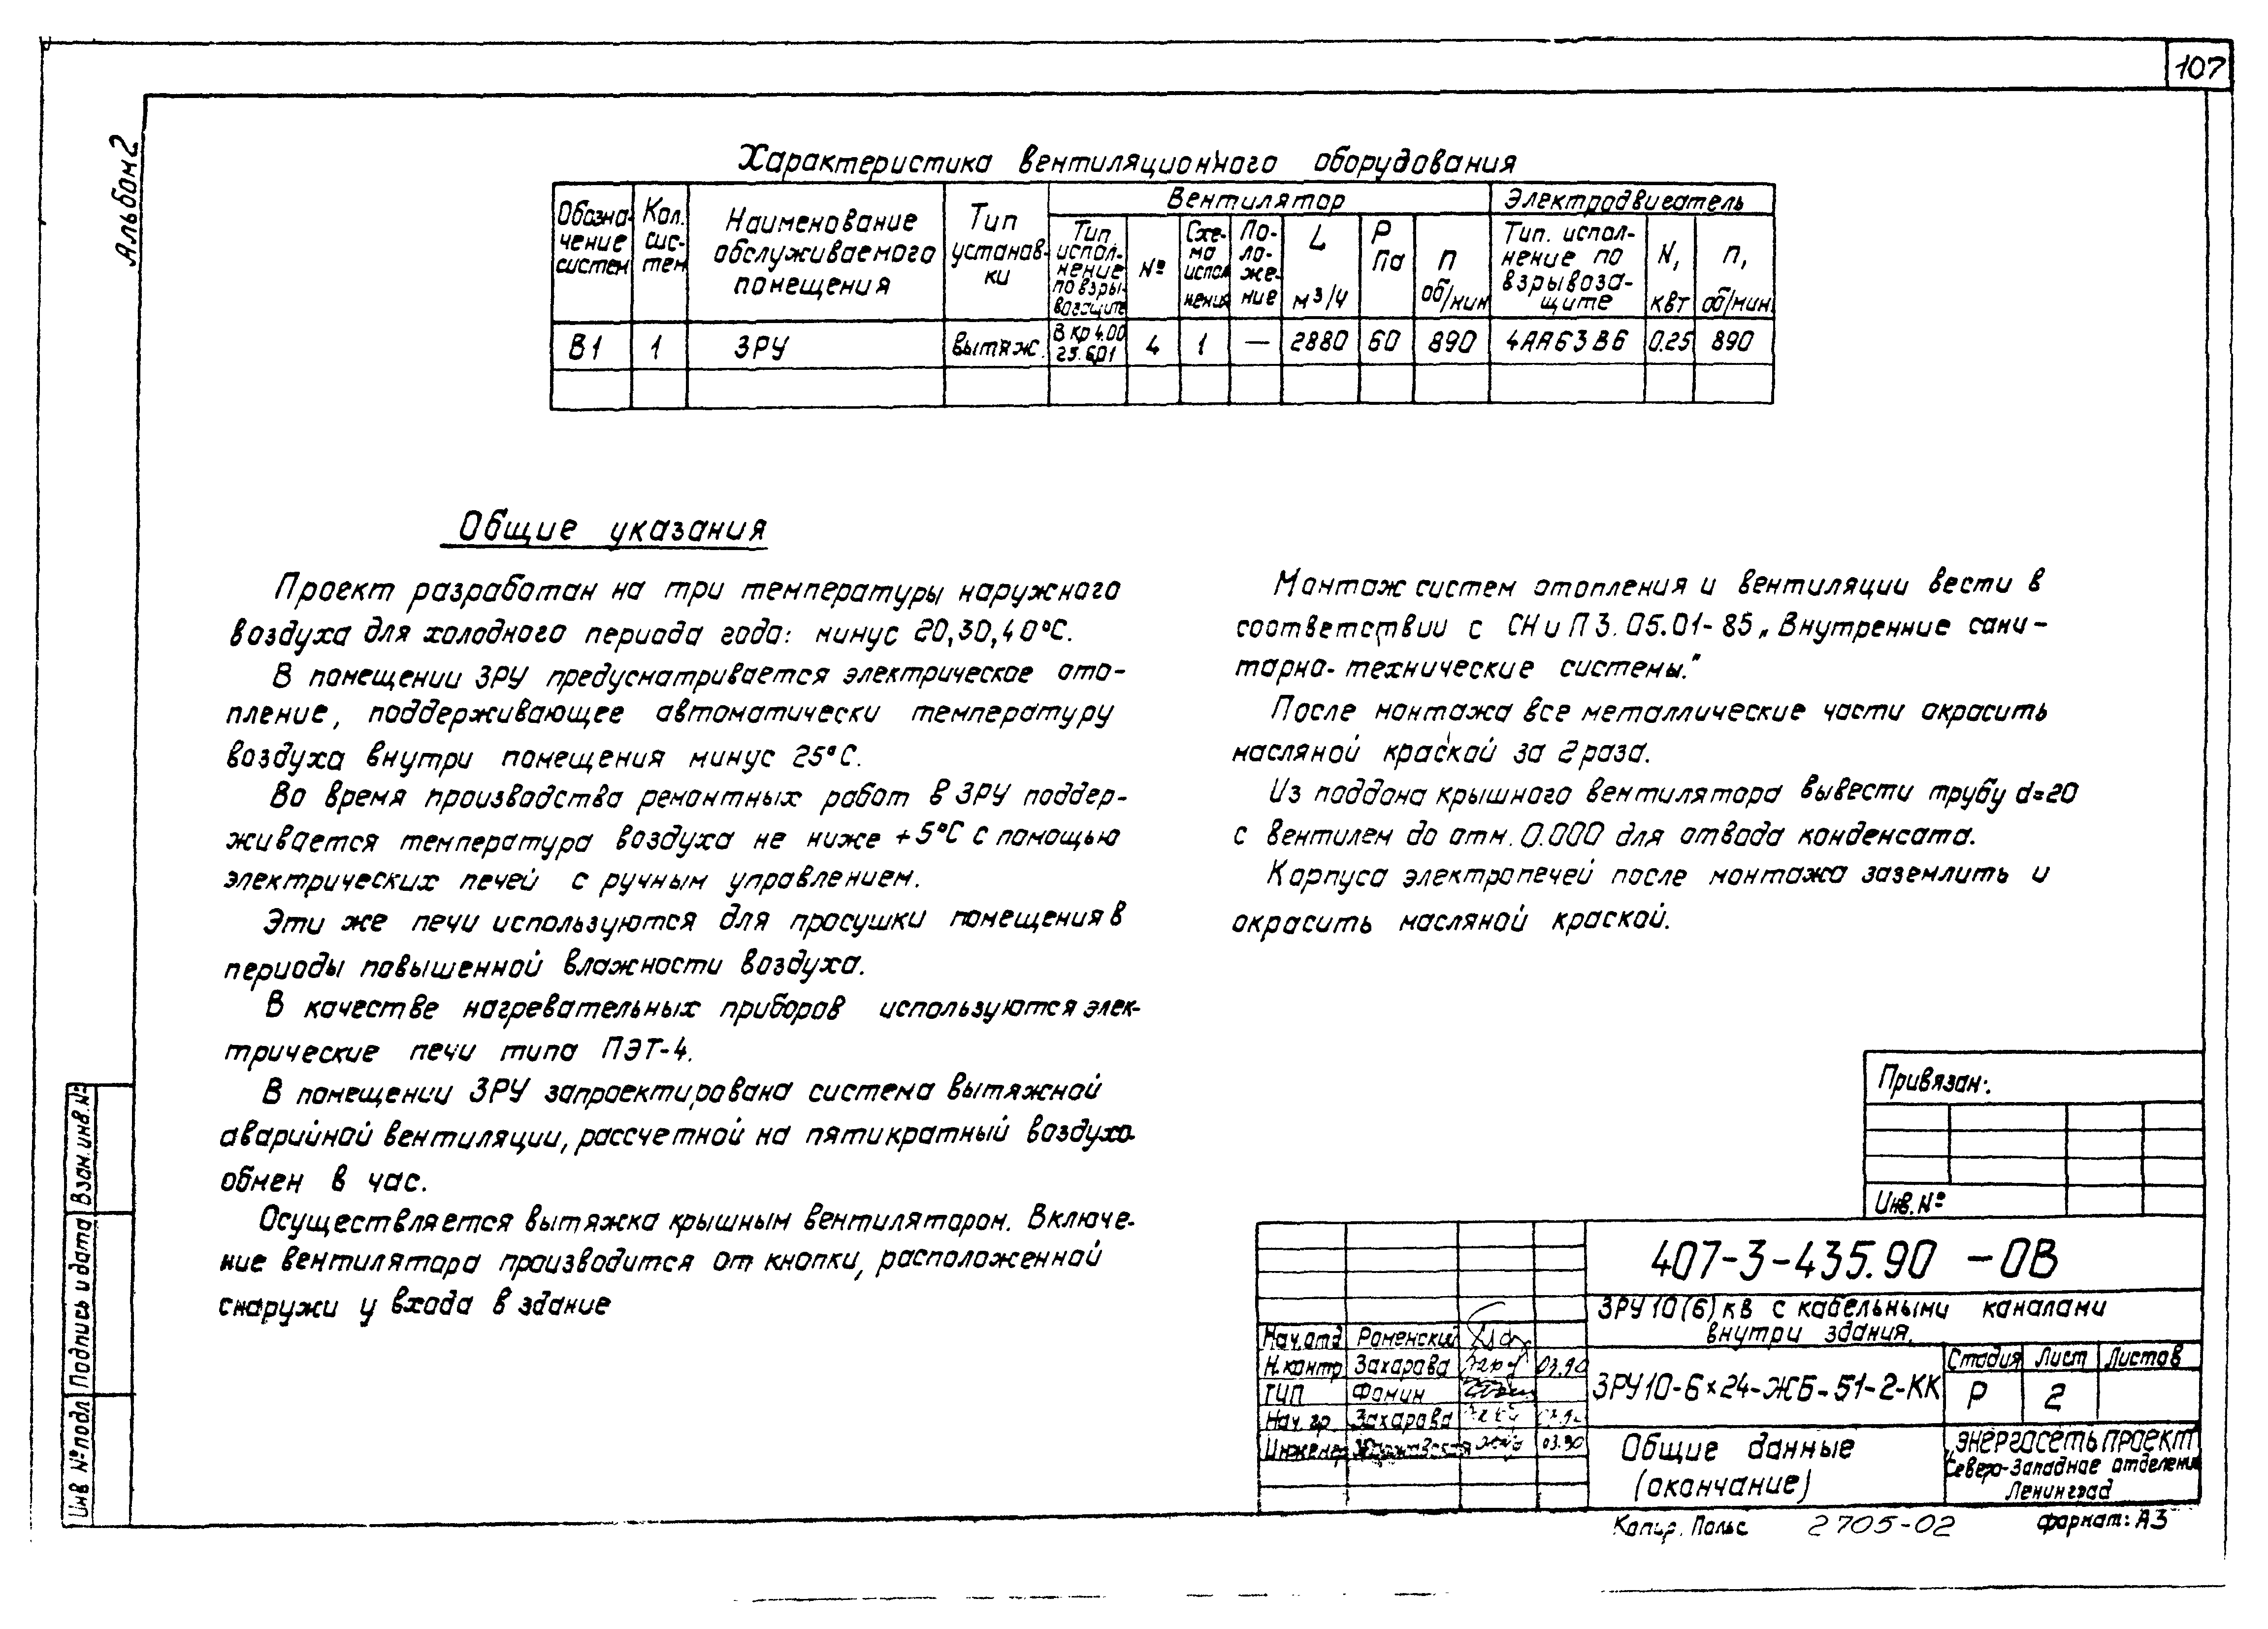 107
Альбом 2
Характеристика вентиляционного оборудования
Обозна-
чение
систем
Кол.
сис-
тем
Наименование
обслуживаемого
помещения
Тип
установ-
ки
Вентилятор
Тип
испол-
нение
по взры-
возащите
№
Схе-
ма
испол
нения
По-
ло-
же-
ние
L
м³/ч
Р
Па
п
об/мин
Электродвигатель
Тип. испол-
нение по
взрывоза-
щите
N,
квт
п,
об/мин
В1 1 ЗРУ вытяж. В Кр 4.00 4 1 — 2880 60 890 4АА63В6 0.25 890
25.6.01
Общие указания
Проект разработан на три температуры наружного
воздуха для холодного периода года: минус 20,30,40°С.
В помещении ЗРУ предусматривается электрическое ото-
пление, поддерживающее автоматически температуру
воздуха внутри помещения минус 25°С.
Во время производства ремонтных работ в ЗРУ поддер-
живается температура воздуха не ниже +5°С с помощью
электрических печей с ручным управлением.
Эти же печи используются для просушки помещения в
периоды повышенной влажности воздуха.
В качестве нагревательных приборов используются элек-
трические печи типа ПЭТ-4.
В помещении ЗРУ запроектирована система вытяжной
аварийной вентиляции, рассчетной на пятикратный воздухо-
обмен в час.
Осуществляется вытяжка крышным вентилятором. Включе-
ние вентилятора производится от кнопки, расположенной
снаружи у входа в здание
Монтаж систем отопления и вентиляции вести в
соответствии с СНиП 3.05.01-85 „Внутренние сани-
тарно-технические системы."
После монтажа все металлические части окрасить
масляной краской за 2 раза.
Из поддона крышного вентилятора вывести трубу d=20
с вентилем до отм. 0.000 для отвода конденсата.
Корпуса электропечей после монтажа заземлить и
окрасить масляной краской.
Привязан:
Инв. №
407-3-435.90 -ОВ
ЗРУ 10(6) кв с кабельными каналами
внутри здания.
Нач.отд Роменский
Н.контр Захарова 03.90
ГИП Фомин
Нач. гр. Захарова
Инженер 03.90
ЗРУ10-6×24-ЖБ-51-2-КК
Стадия Лист Листов
Р 2
Общие данные
(окончание)
ЭНЕРГОСЕТЬПРОЕКТ
Северо-Западное отделение
Ленинград
Копир. Польс 2705-02 формат: А3
Взам.инв.№
Подпись и дата
Инв № подл